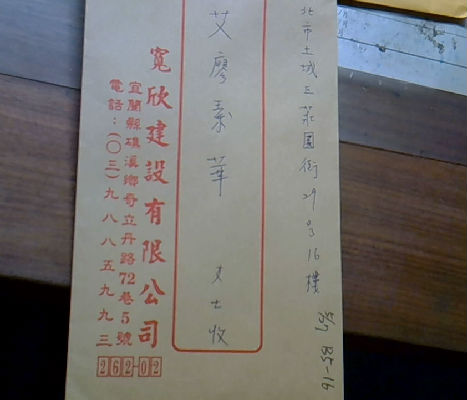 北市土城三莊園街29号16樓
5/7 B5-16
艾廖素華 女士收
寬欣建設有限公司
宜蘭縣礁溪鄉奇立丹路72巷5號
電話：（〇三）九八八五九九三
262-02